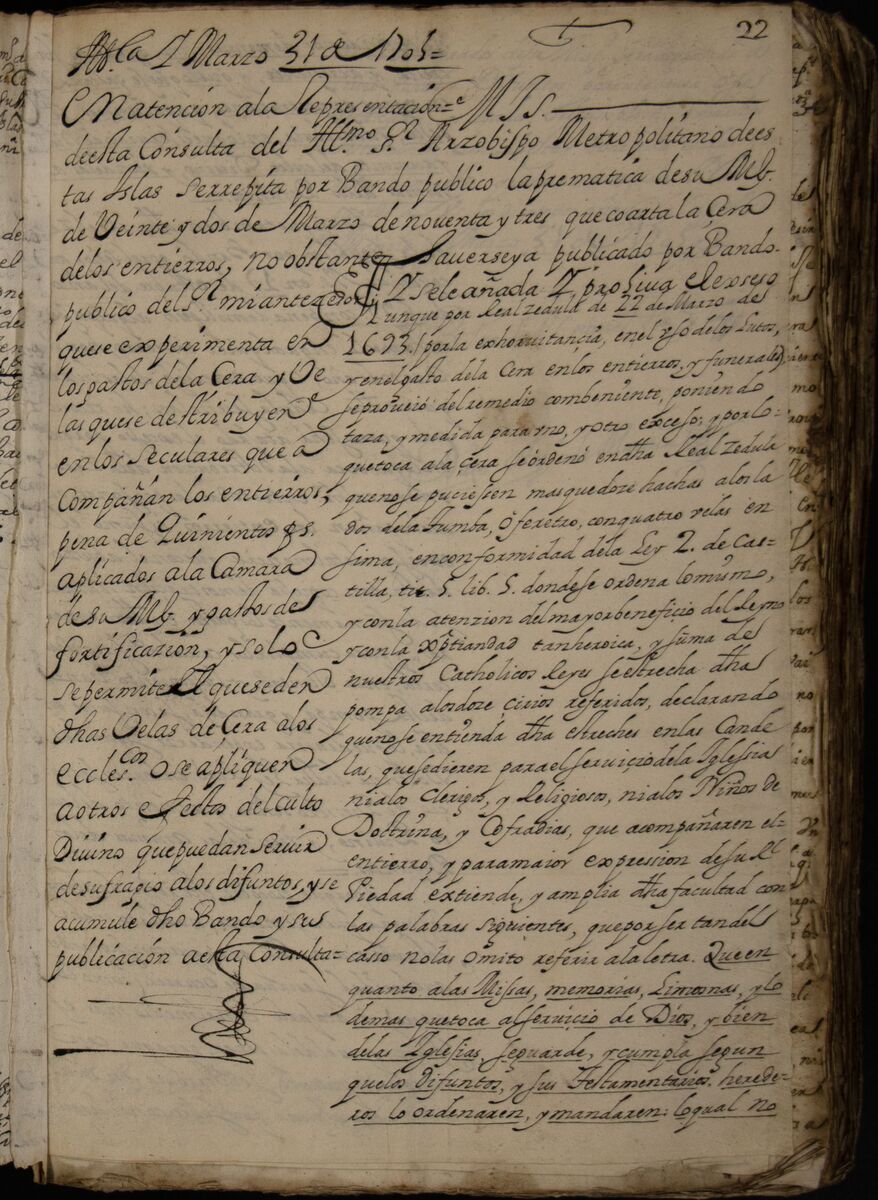 22
Mla y Marzo 31 de 1701=
En atención a la Representación
de esta Consulta del Illmo Sr Arzobispo Metropolitano de es
tas Islas se rrepita por Bando publico la prematica de su Mg.
de Veinte y dos de Marzo de noventa y tres que coarta la Cera
de los entierros, no obstante haverse ya publicado por Bando
publico del Sr mi antecesor, y se le añada y prohiva el exseso
que se experimenta en
los gastos de la Cera y Ve
las que se destribuyen
en los seculares que a
compañan los entierros,
pena de Quinientos ps.
aplicados a la Camara
de su Mg. y gastos de
fortificazión, y solo
se permite el que se den
dhas Velas de Cera a los
eccles.cos o se apliquen
a otros efectos del culto
Divino que puedan servir
de sufragio a los difuntos, y se
acumule dho Bando y sus
publicación a esta Consulta=
M I S.
Aunque por Real zedula de 22 de Marzo de
1693. por la exhorvitancia, en el uso de los Lutos,
y en el gasto de la Cera en los entierros, y funerales,
se proueió del remedio combeniente, poniendo
taza, y medida para uno, y otro exceso; y por lo
que toca a la çera se órdenó en dha Real Zedula
que no se puciessen mas que doze hachas a los la
dos de la tumba, ó feretro, con quatro velas en
sima, en conformidad de la Ley 2. de Cas-
tilla, tit. 5. lib. 5. donde se ordena lo mismo,
y con la atenzion del mayor beneficio del Reyno
y con la xptiandad tan heroica, y suma de
nuestros Catholicos Reyes se estrecha dha
pompa a los doze cirios referidos, declarando
que no se entienda dha estreches en las Cande
las, que se dieren para el servicio de la Iglesia
ni a los Clerigos, y Religiosos, ni a los Niños de
Doctrina, y Cofradias, que acompañaren el
entierro, y para maior expression de su Rl
Piedad extiende, y amplia dha facultad con
las palabras siguientes, que por ser tan del
casso no las ómito referir a la letra. Que en
quanto a las Missas, memorias, Limosnas, y lo
demas que toca al servicio de Dios, y bien
de las Iglesias, se guarde, y cumpla segun
que los Difuntos, y sus Testamentarios. herede-
ros lo ordenaren, y mandaren: lo qual no